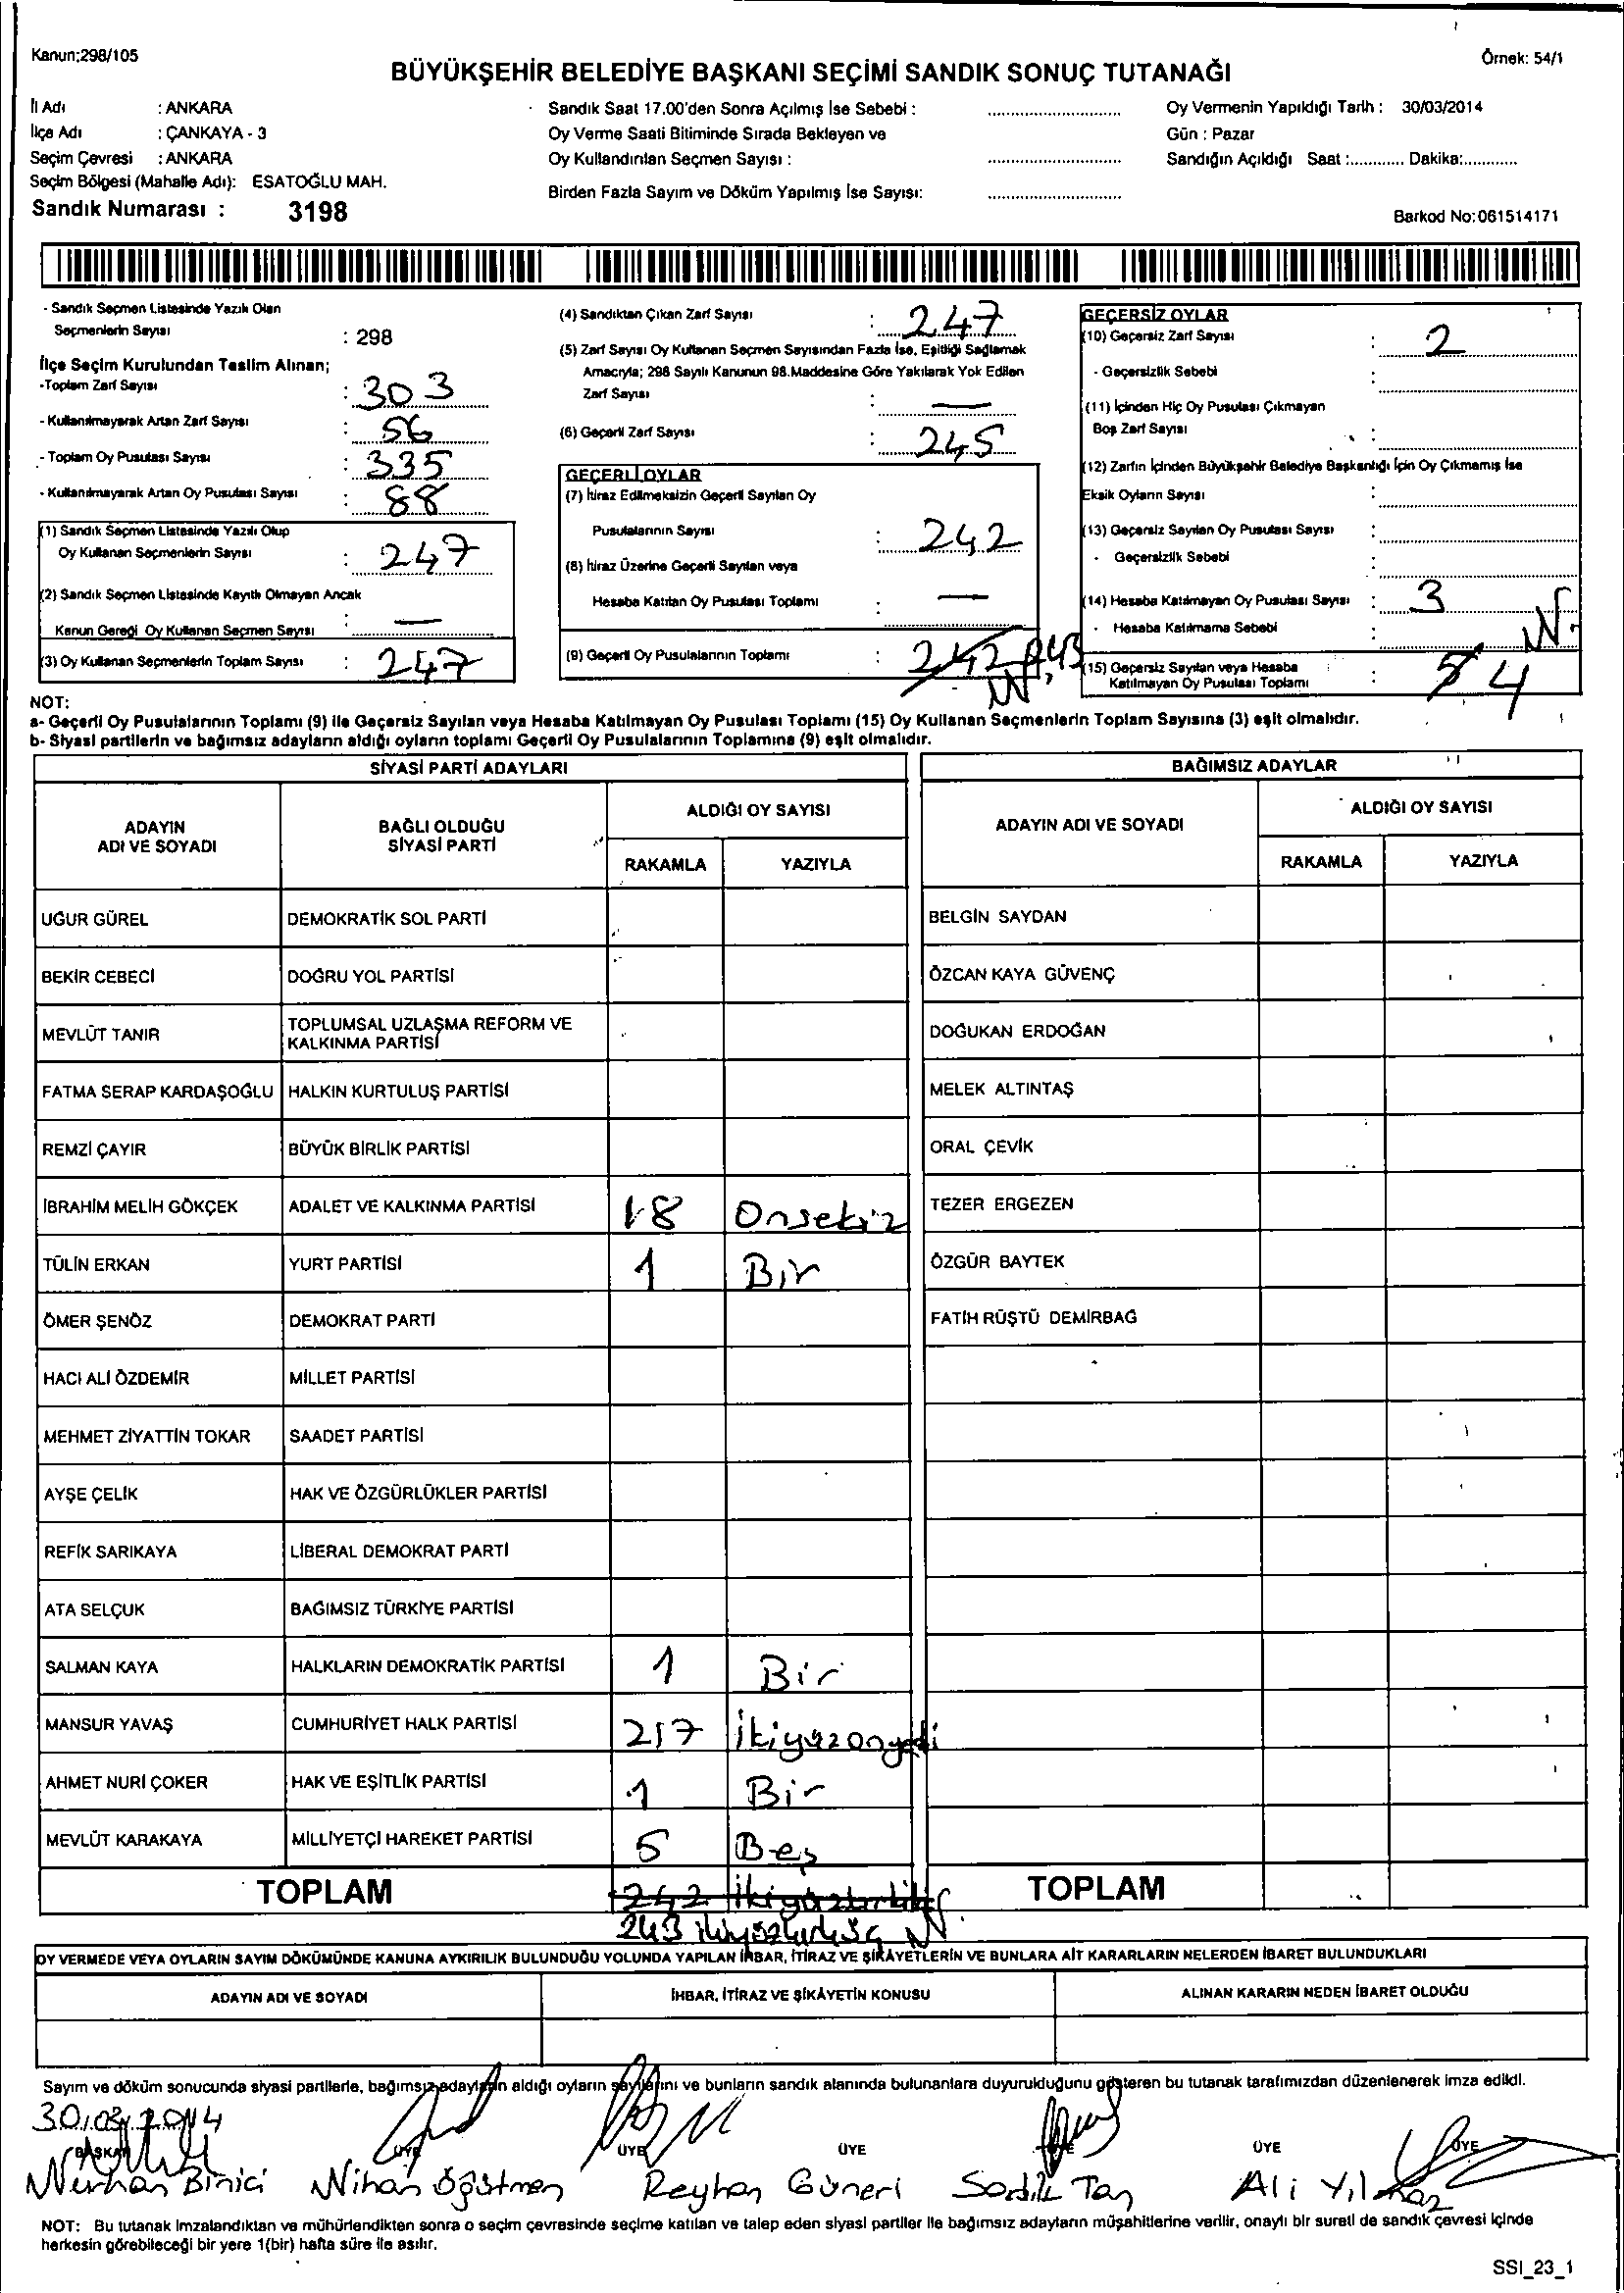 Kanun;298/105
Örnek: 54/1
BÜYÜKŞEHİR BELEDİYE BAŞKANI SEÇİMİ SANDIK SONUÇ TUTANAĞI
İl Adı : ANKARA
İlçe Adı : ÇANKAYA - 3
Seçim Çevresi : ANKARA
Seçim Bölgesi (Mahalle Adı): ESATOĞLU MAH.
Sandık Numarası : 3198
Sandık Saat 17.00'den Sonra Açılmış İse Sebebi :
Oy Verme Saati Bitiminde Sırada Bekleyen ve
Oy Kullandırılan Seçmen Sayısı :
Birden Fazla Sayım ve Döküm Yapılmış İse Sayısı:
Oy Vermenin Yapıldığı Tarih : 30/03/2014
Gün : Pazar
Sandığın Açıldığı Saat :............ Dakika:............
Barkod No:061514171
- Sandık Seçmen Listesinde Yazılı Olan
Seçmenlerin Sayısı : 298
İlçe Seçim Kurulundan Teslim Alınan;
-Toplam Zarf Sayısı : 303
- Kullanılmayarak Artan Zarf Sayısı : 56
- Toplam Oy Pusulası Sayısı : 335
- Kullanılmayarak Artan Oy Pusulası Sayısı : 88
(1) Sandık Seçmen Listesinde Yazılı Olup
Oy Kullanan Seçmenlerin Sayısı : 247
(2) Sandık Seçmen Listesinde Kayıtlı Olmayan Ancak
Kanun Gereği Oy Kullanan Seçmen Sayısı : —
(3) Oy Kullanan Seçmenlerin Toplam Sayısı : 247
(4) Sandıktan Çıkan Zarf Sayısı : 247
(5) Zarf Sayısı Oy Kullanan Seçmen Sayısından Fazla İse, Eşitliği Sağlamak
Amacıyla; 298 Sayılı Kanunun 98.Maddesine Göre Yakılarak Yok Edilen
Zarf Sayısı : —
(6) Geçerli Zarf Sayısı : 245
GEÇERLİ OYLAR
(7) İtiraz Edilmeksizin Geçerli Sayılan Oy
Pusulalarının Sayısı : 242
(8) İtiraz Üzerine Geçerli Sayılan veya
Hesaba Katılan Oy Pusulası Toplamı : —
(9) Geçerli Oy Pusulalarının Toplamı : 242 243
GEÇERSİZ OYLAR
(10) Geçersiz Zarf Sayısı : 2
- Geçersizlik Sebebi :
(11) İçinden Hiç Oy Pusulası Çıkmayan
Boş Zarf Sayısı :
(12) Zarfın İçinden Büyükşehir Belediye Başkanlığı İçin Oy Çıkmamış İse
Eksik Oyların Sayısı :
(13) Geçersiz Sayılan Oy Pusulası Sayısı :
- Geçersizlik Sebebi :
(14) Hesaba Katılmayan Oy Pusulası Sayısı : 3
- Hesaba Katılmama Sebebi :
(15) Geçersiz Sayılan veya Hesaba
Katılmayan Oy Pusulası Toplamı : 5 4
NOT:
a- Geçerli Oy Pusulalarının Toplamı (9) ile Geçersiz Sayılan veya Hesaba Katılmayan Oy Pusulası Toplamı (15) Oy Kullanan Seçmenlerin Toplam Sayısına (3) eşit olmalıdır.
b- Siyasi partilerin ve bağımsız adayların aldığı oyların toplamı Geçerli Oy Pusulalarının Toplamına (9) eşit olmalıdır.
SİYASİ PARTİ ADAYLARI
BAĞIMSIZ ADAYLAR
ADAYIN ADI VE SOYADI
BAĞLI OLDUĞU SİYASİ PARTİ
ALDIĞI OY SAYISI
RAKAMLA YAZIYLA
ADAYIN ADI VE SOYADI
ALDIĞI OY SAYISI
RAKAMLA YAZIYLA
UĞUR GÜREL DEMOKRATİK SOL PARTİ BELGİN SAYDAN
BEKİR CEBECİ DOĞRU YOL PARTİSİ ÖZCAN KAYA GÜVENÇ
MEVLÜT TANIR TOPLUMSAL UZLAŞMA REFORM VE KALKINMA PARTİSİ DOĞUKAN ERDOĞAN
FATMA SERAP KARDAŞOĞLU HALKIN KURTULUŞ PARTİSİ MELEK ALTINTAŞ
REMZİ ÇAYIR BÜYÜK BİRLİK PARTİSİ ORAL ÇEVİK
İBRAHİM MELİH GÖKÇEK ADALET VE KALKINMA PARTİSİ 18 Onsekiz TEZER ERGEZEN
TÜLİN ERKAN YURT PARTİSİ 1 Bir ÖZGÜR BAYTEK
ÖMER ŞENÖZ DEMOKRAT PARTİ FATİH RÜŞTÜ DEMİRBAĞ
HACI ALİ ÖZDEMİR MİLLET PARTİSİ
MEHMET ZİYATTİN TOKAR SAADET PARTİSİ
AYŞE ÇELİK HAK VE ÖZGÜRLÜKLER PARTİSİ
REFİK SARIKAYA LİBERAL DEMOKRAT PARTİ
ATA SELÇUK BAĞIMSIZ TÜRKİYE PARTİSİ
SALMAN KAYA HALKLARIN DEMOKRATİK PARTİSİ 1 Bir
MANSUR YAVAŞ CUMHURİYET HALK PARTİSİ 217 ikiyüzonyedi
AHMET NURİ ÇOKER HAK VE EŞİTLİK PARTİSİ 1 Bir
MEVLÜT KARAKAYA MİLLİYETÇİ HAREKET PARTİSİ 5 Beş
TOPLAM 242 ikiyüzkırkiki TOPLAM
243 ikiyüzkırküç
OY VERMEDE VEYA OYLARIN SAYIM DÖKÜMÜNDE KANUNA AYKIRILIK BULUNDUĞU YOLUNDA YAPILAN İHBAR, İTİRAZ VE ŞİKÂYETLERİN VE BUNLARA AİT KARARLARIN NELERDEN İBARET BULUNDUKLARI
ADAYIN ADI VE SOYADI İHBAR, İTİRAZ VE ŞİKÂYETİN KONUSU ALINAN KARARIN NEDEN İBARET OLDUĞU
Sayım ve döküm sonucunda siyasi partilerle, bağımsız adayların aldığı oyların sayılarını ve bunların sandık alanında bulunanlara duyurulduğunu gösteren bu tutanak tarafımızdan düzenlenerek imza edildi.
30.03.2014
BAŞKAN ÜYE ÜYE ÜYE ÜYE ÜYE ÜYE
Nurhan Binici Nihan Öğütmen Reyhan Güneri Sadık Tan Ali Yılmaz
NOT: Bu tutanak imzalandıktan ve mühürlendikten sonra o seçim çevresinde seçime katılan ve talep eden siyasi partiler ile bağımsız adayların müşahitlerine verilir, onaylı bir sureti de sandık çevresi içinde
herkesin görebileceği bir yere 1(bir) hafta süre ile asılır.
SSI_23_1